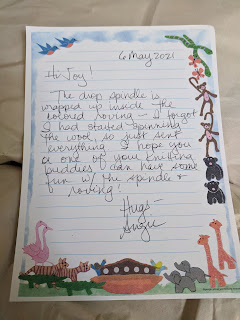 6 May 2021
Hi Joy!
The drop spindle is
wrapped up inside the
colored roving - I forgot
I had started spinning
the wool, so just sent
everything. I hope you
or one of your knitting
buddies can have some
fun w/ the spindle &
roving!
Hugs-
Angie